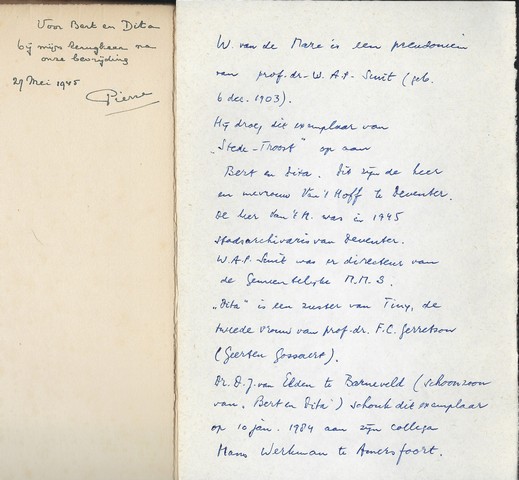 Voor Bert en Dita
bij mijn terugkeer na
onze bevrijding
29 Mei 1945
Pierre
W. van de Mare is een pseudoniem
van prof. dr. W. A. P. Smit (geb.
6 dec. 1903).
Hij droeg dit exemplaar van
„Stede-Troost" op aan
Bert en Dita. Dit zijn de heer
en mevrouw Van 't Hoff te Deventer.
De heer Van 't H. was in 1945
stadsarchivaris van Deventer.
W.A.P. Smit was er directeur van
de Gemeentelijke M.M.S.
„Dita" is een zuster van Tiny, de
tweede vrouw van prof. dr. F.C. Gerretson
(Geerten Gossaert).
Dr. D. J. van Elden te Barneveld (schoonzoon
van „Bert en Dita") schonk dit exemplaar
op 10 jan. 1984 aan zijn collega
Hans Werkman te Amersfoort.